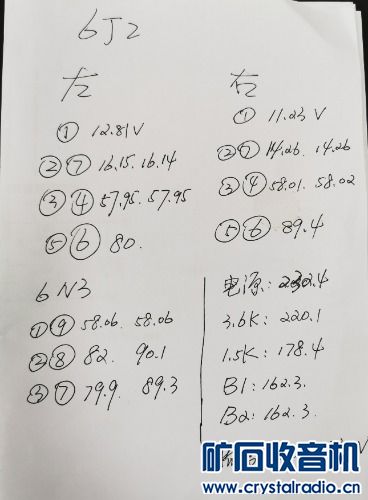 6J2
左
① 12.81V
②⑦ 16.15. 16.14
③④ 57.95. 57.95
⑤⑥ 80.
右
① 11.23 V
②⑦ 14.26 14.26
③④ 58.01. 58.02
⑤⑥ 89.4
6N3
①⑨ 58.06 58.06
②⑧ 82. 90.1
③⑦ 79.9 89.3
电源: 232.4
3.6K: 220.1
1.5K: 178.4
B1: 162.3.
B2: 162.3.
V
矿石收音机
www.crystalradio.cn